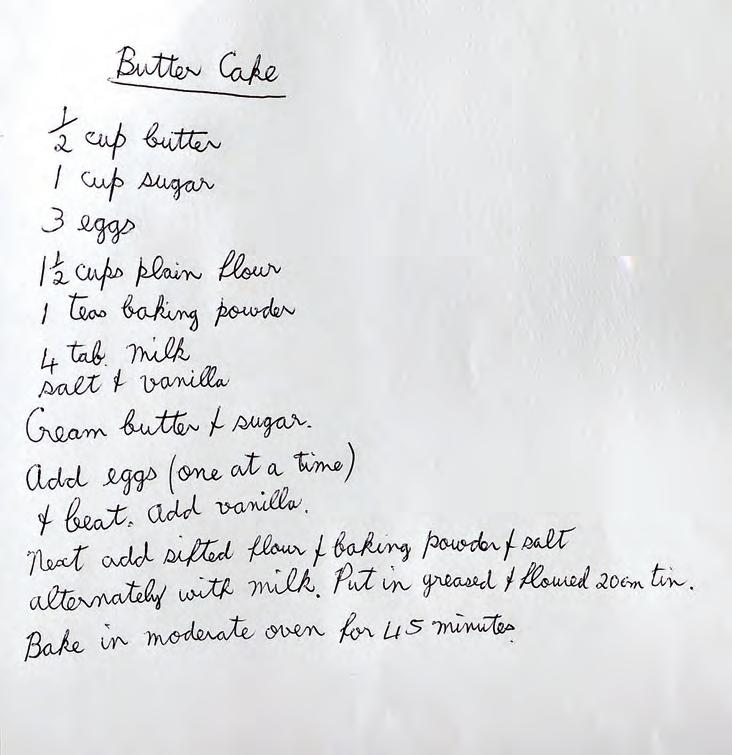 Butter Cake
1/2 cup butter
1 cup sugar
3 eggs
1 1/2 cups plain flour
1 teas baking powder
4 tab. milk
salt & vanilla
Cream butter & sugar.
Add eggs (one at a time)
& beat. Add vanilla.
Next add sifted flour & baking powder & salt
alternately with milk. Put in greased & floured 20cm tin.
Bake in moderate oven for 45 minutes.